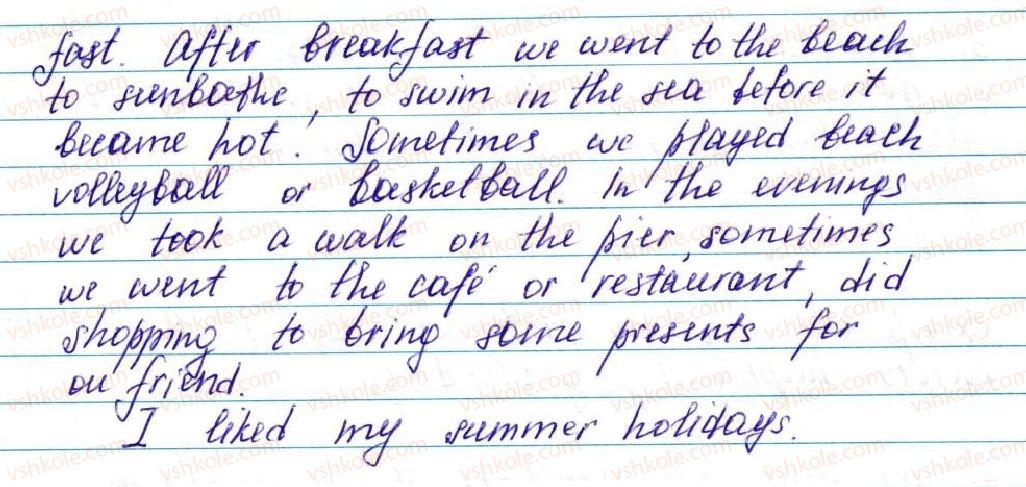 fast. After breakfast we went to the beach
to sunbathe, to swim in the sea before it
became hot. Sometimes we played beach
volleyball or basketball. In the evenings
we took a walk on the pier, sometimes
we went to the café or restaurant, did
shopping to bring some presents for
ou friend.
I liked my summer holidays.